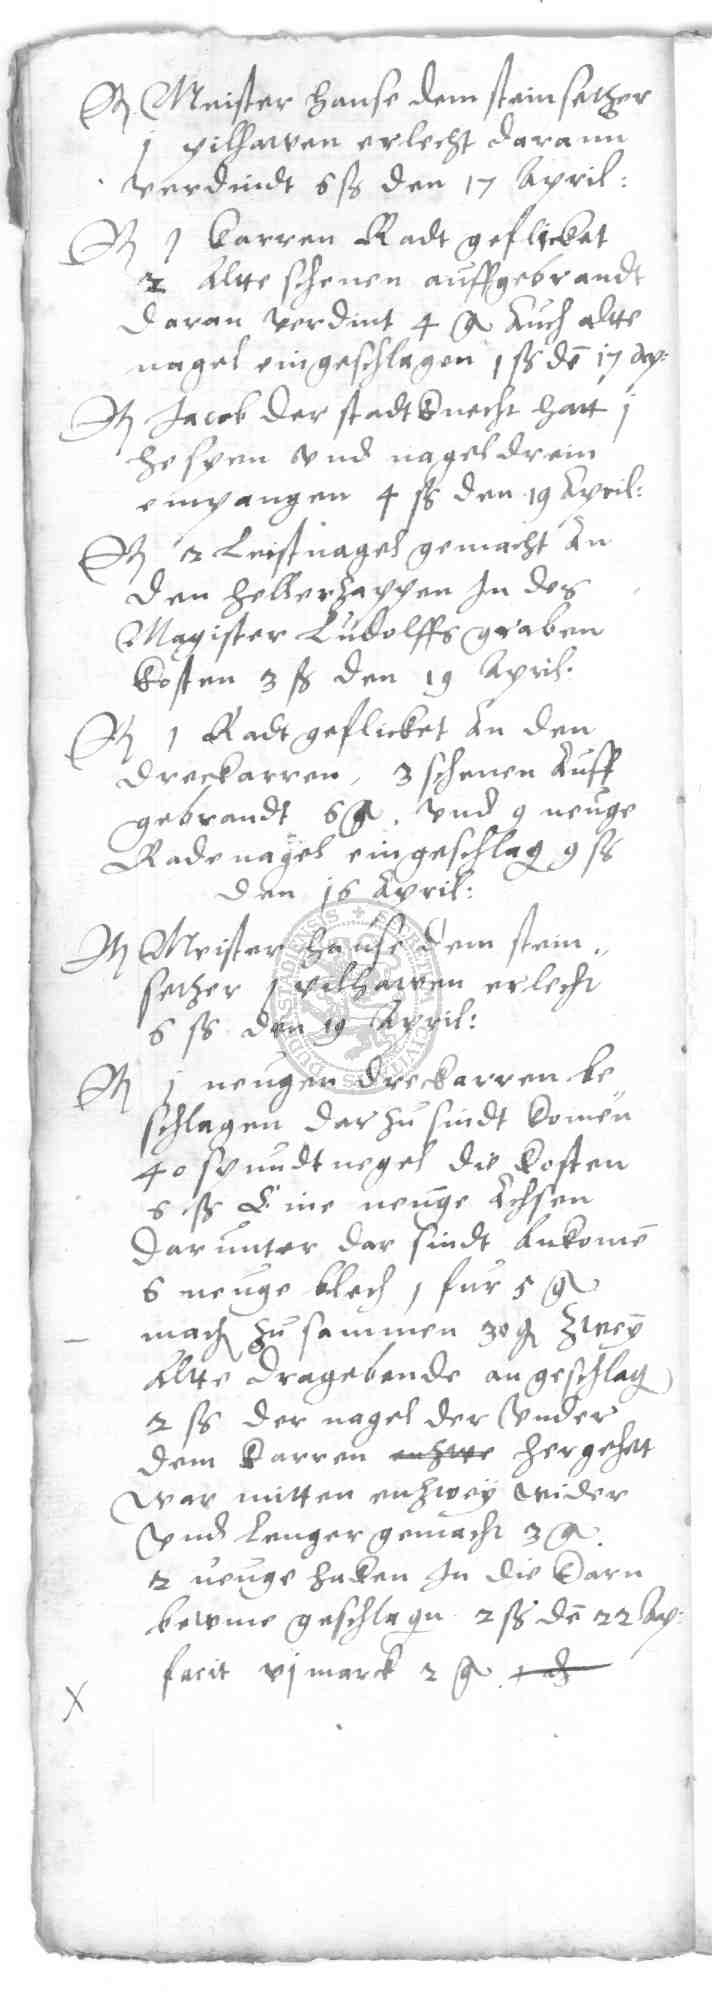 It Meister Hanse dem steinsetzer
j pilhawen erlecht darann
verdindt 6 ß den 17 April:
It 1 karren Radt geflicket
2 Altte schenen auffgebrandt
daran verdint 4 g Auch altte
nagel eingeschlagen 1 ß dē 17 Ap:
It Jacob der stadtknecht hatt j
hespen vnd nagel drein
empangen 4 ß den 19 April:
It 2 Leistnagel gemacht An
den hellerzappen In des
Magister Ludolffs graben
kosten 3 ß den 19 April.
It 1 Radt geflicket An den
dreckarren, 3 schenen Auff
gebrandt 6 g. vnd 9 neuge
Radenagel eingeschlag 9 ß
den 16 April:
It Meister Hanse dem stein„
setzer 1 pilhawen erlecht
6 ß den 19 April:
It j neugen dreckarren be„
schlagen dar zu sindt komen
40 spundtnegel die kosten
6 ß Eine neuge Achsen
darunter dar sindt Ankomē
6 neuge blech 1 fur 5 g
mach zu sammen 30 g zweÿ
Altte dragebende angeschlag
2 ß der nagel der Vnder
dem karren enzwe hergehett
war mitten enzweÿ wider
Vnd Lenger gemacht 3 g.
2 neuge haken In die karn
bewme geschlagn 2 ß dē 22 Ap:
facit vj marck 2 g
X